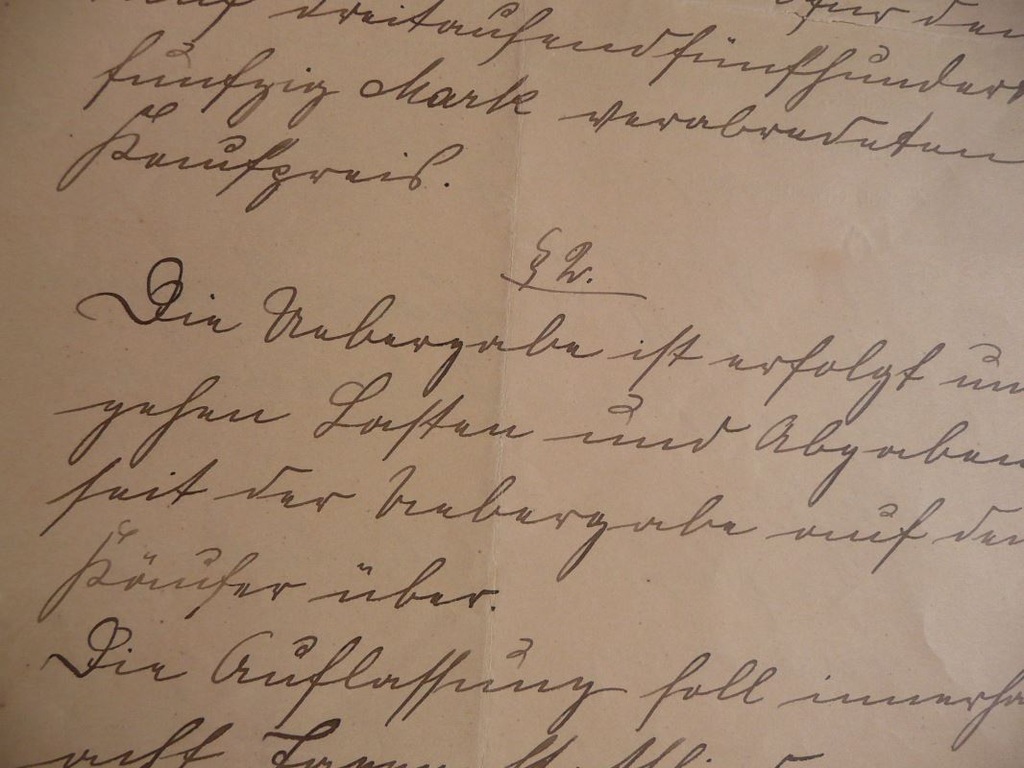 auf dreitausendfünfhundert
für den
fünfzig Mark verabredeten
Kaufpreis.
§ 2.
Die Uebergabe ist erfolgt un
gehen Lasten und Abgaben
seit der Uebergabe auf den
Käufer über.
Die Auflassung soll innerha
acht Tagen